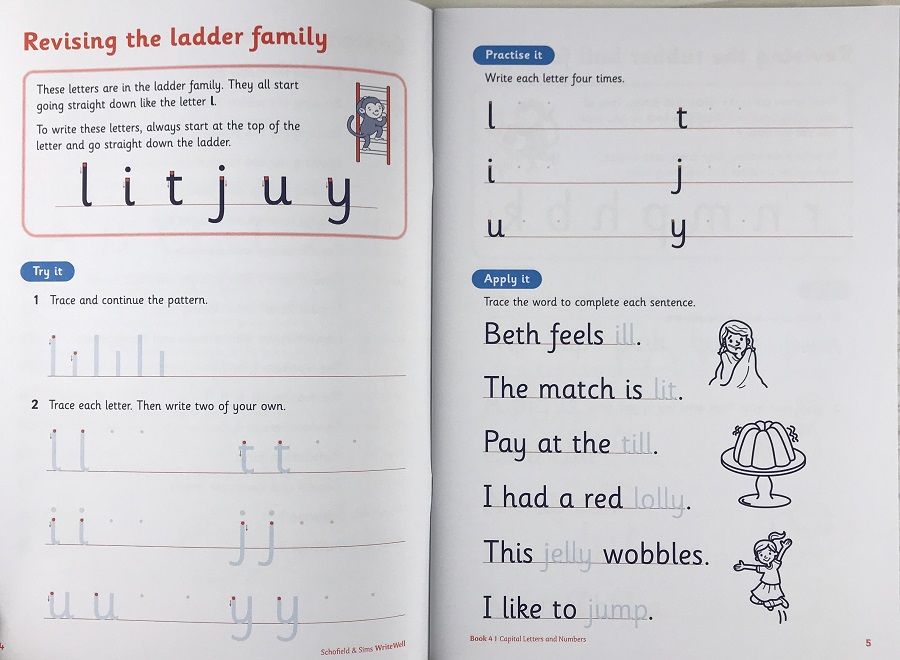 Revising the ladder family
These letters are in the ladder family. They all start
going straight down like the letter l.
To write these letters, always start at the top of the
letter and go straight down the ladder.
l i t j u y
Try it
1 Trace and continue the pattern.
2 Trace each letter. Then write two of your own.
l l t t
i i j j
u u y y
4
Schofield & Sims WriteWell
Practise it
Write each letter four times.
l t
i j
u y
Apply it
Trace the word to complete each sentence.
Beth feels ill.
The match is lit.
Pay at the till.
I had a red lolly.
This jelly wobbles.
I like to jump.
Book 4 | Capital Letters and Numbers
5